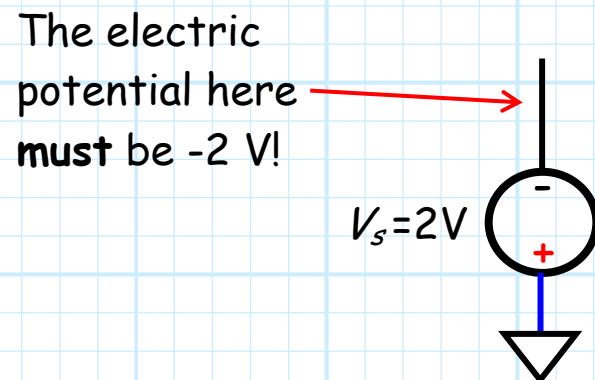 The electric
potential here
must be -2 V!
-
Vs=2V
+